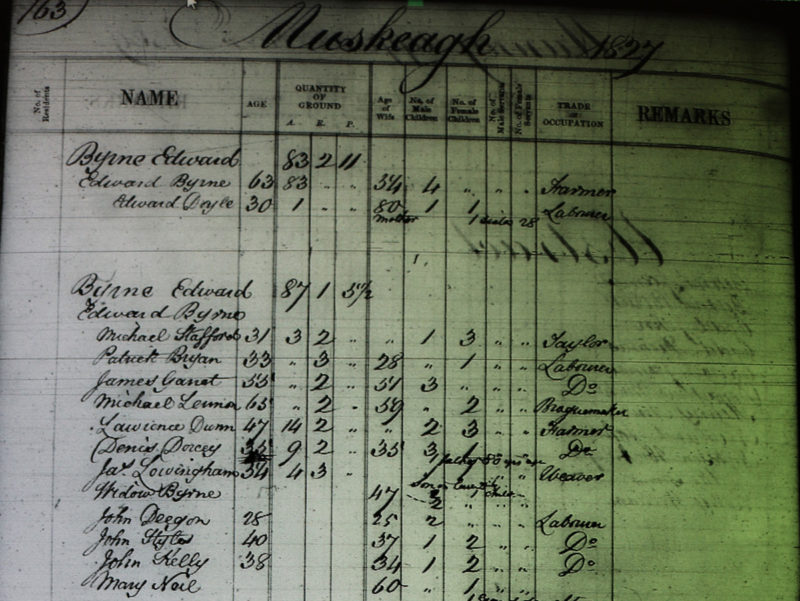 163
Muskeagh 1827
No. of Residents NAME AGE QUANTITY OF GROUND A. R. P. Age of Wife No. of Male Children No. of Female Children No. of Male Servants No. of Female Servants TRADE or OCCUPATION REMARKS
Byrne Edward 83 2 11
Edward Byrne 63 83 " " 54 4 " " " Farmer
Edward Doyle 30 1 " " 80 1 1 Labourer
mother 1 sister 28
Byrne Edward 87 1 5½
Edward Byrne
Michael Stafford 31 3 2 " " 1 3 " " Taylor
Patrick Bryan 33 " 3 " 28 " 1 " " Labourer
James Garret 55 " 2 " 51 3 " " Do
Michael Lennon 65 " 2 - 59 " 2 " " Broguemaker
Lawrence Dunn 47 14 2 " " 2 3 " " Farmer
Denis Dorcey 35 9 2 " 35 3 1 Do
father
Jas Lowingham 54 4 3 " Weaver
Son in law
Widow Byrne 47 2
John Deegan 28 25 2 Labourer
John Styles 40 37 1 2 " " Do
John Kelly 38 34 1 2 " " Do
Mary Neil 60 " 1